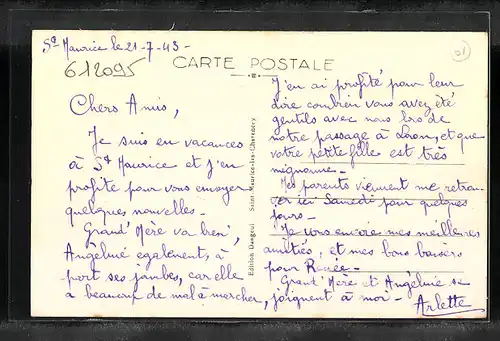 St Maurice le 21-7-43-
612095
CARTE POSTALE
01
Chers Amis,
Je suis en vacances
à St Maurice et j'en
profite pour vous envoyer
quelques nouvelles-
Grand'Mère va bien,
Angéline également, à
part ses jambes, car elle
a beaucoup de mal à marcher,
Edition Daageul Saint-Maurice-les-Charencey
J'en ai profité pour leur
dire combien vous avez été
gentils avec nous lors de
notre passage à et que
votre petite fille est très
mignonne-
Mes parents viennent me retrou-
ver ici Samedi pour quelques
jours-
Je vous envoie mes meilleures
amitiés, et mes bons baisers
pour Renée-
Grand'Mère et Angéline se
joignent à moi- Arlette